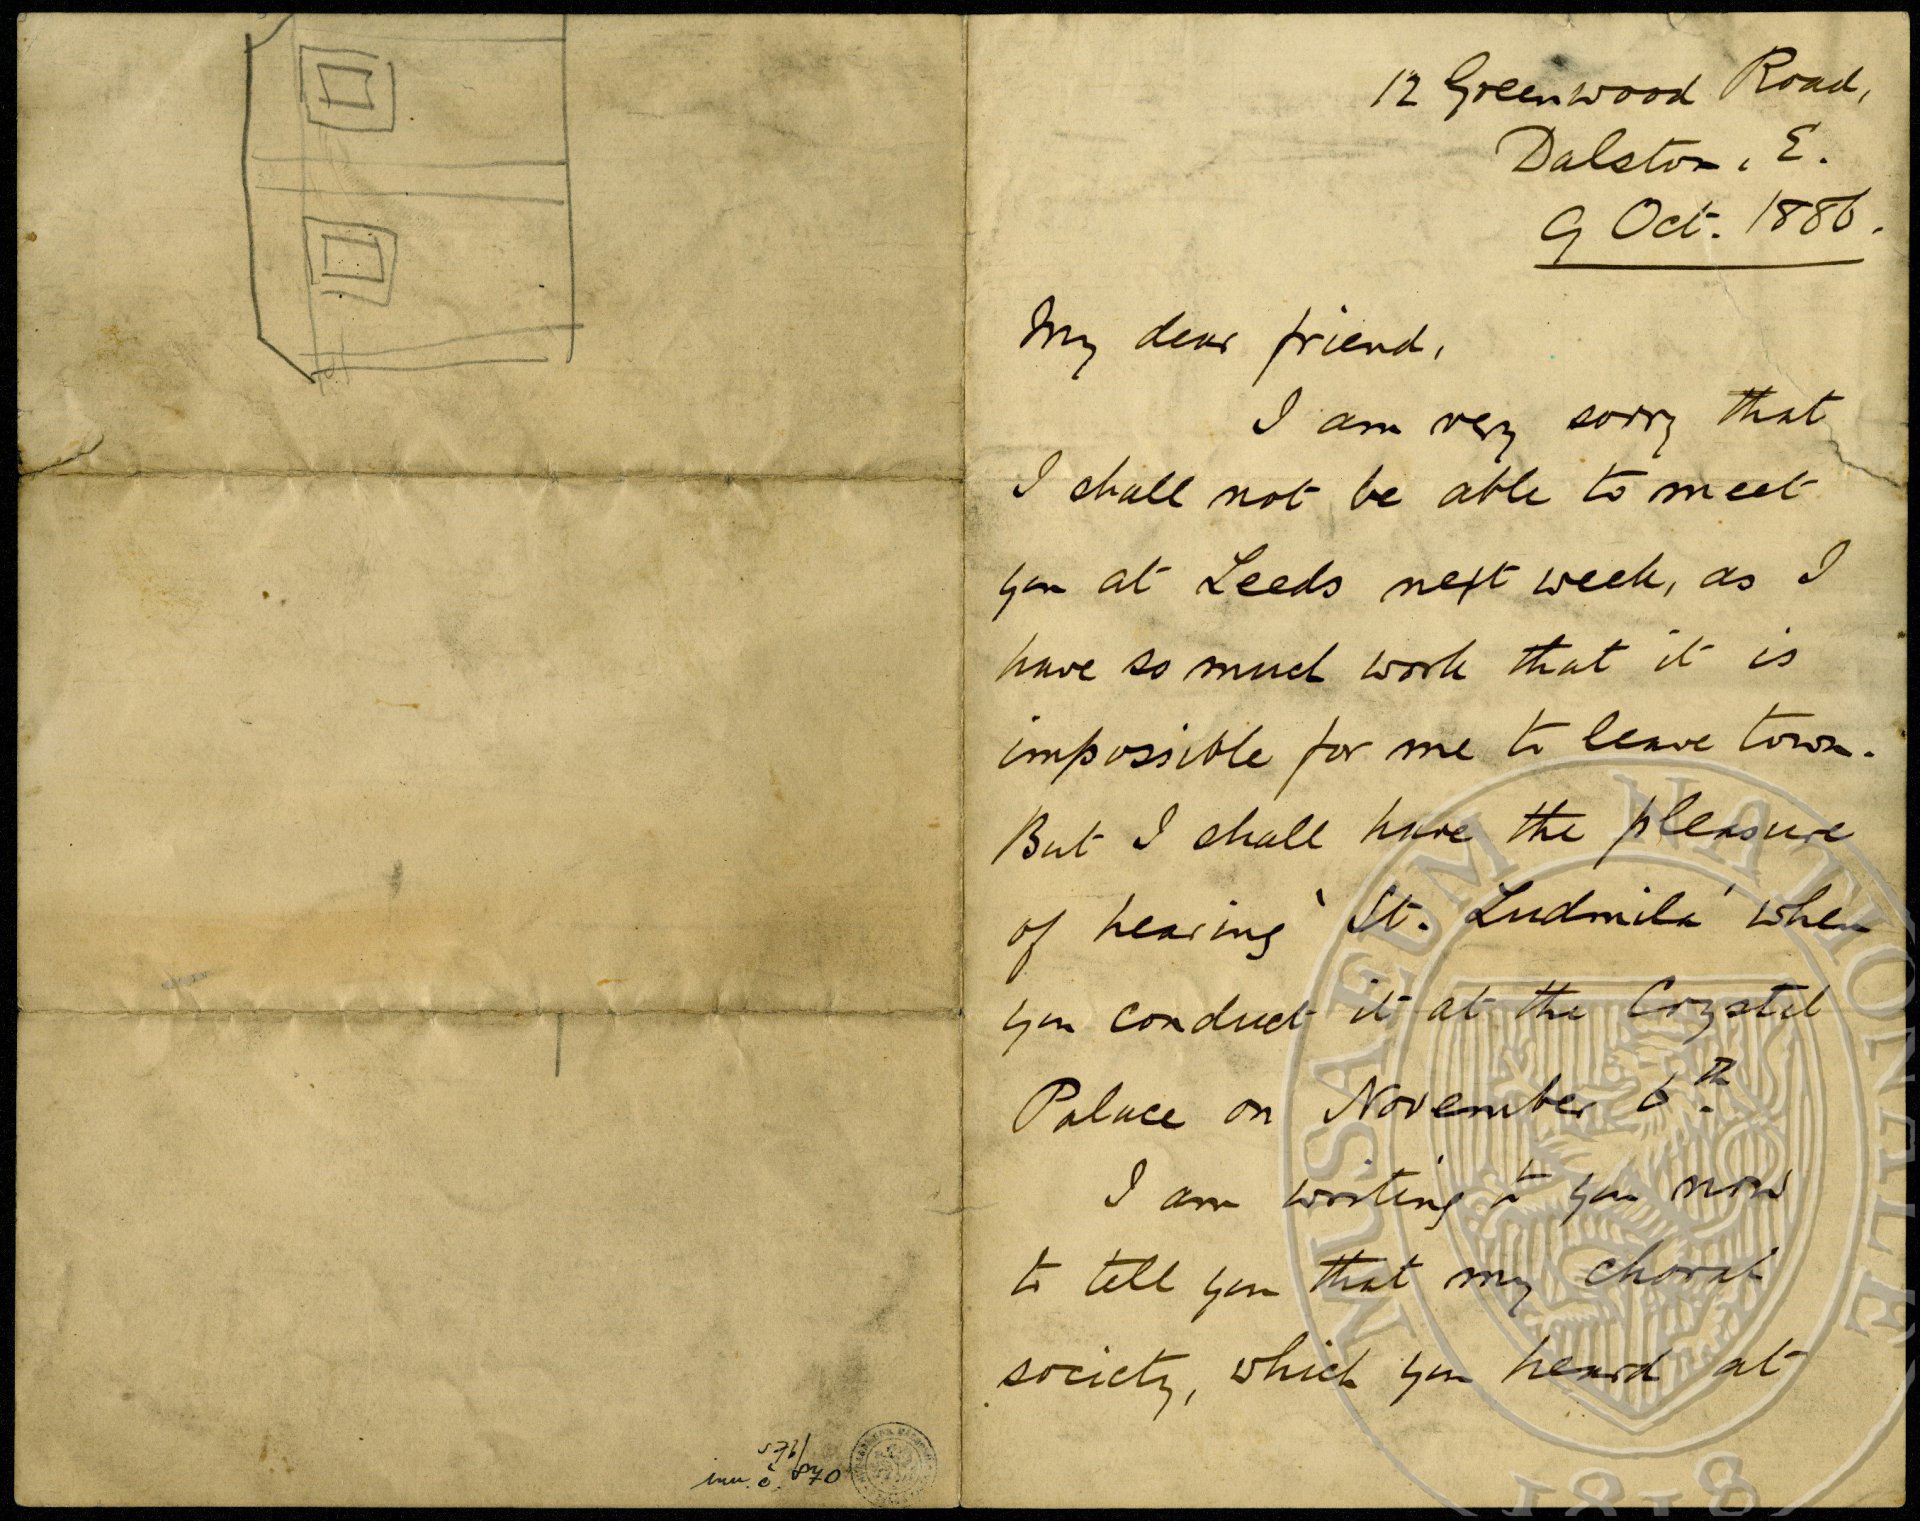 12 Greenwood Road,
Dalston, E.
9 Oct. 1886.
My dear friend,
I am very sorry that
I shall not be able to meet
you at Leeds next week, as I
have so much work that it is
impossible for me to leave town.
But I shall have the pleasure
of hearing 'St. Ludmila' when
you conduct it at the Crystal
Palace on November 6th.
I am writing to you now
to tell you that my choral
society, which you heard at
inv. č. 870
MUSAEUM NATIONALE
1818